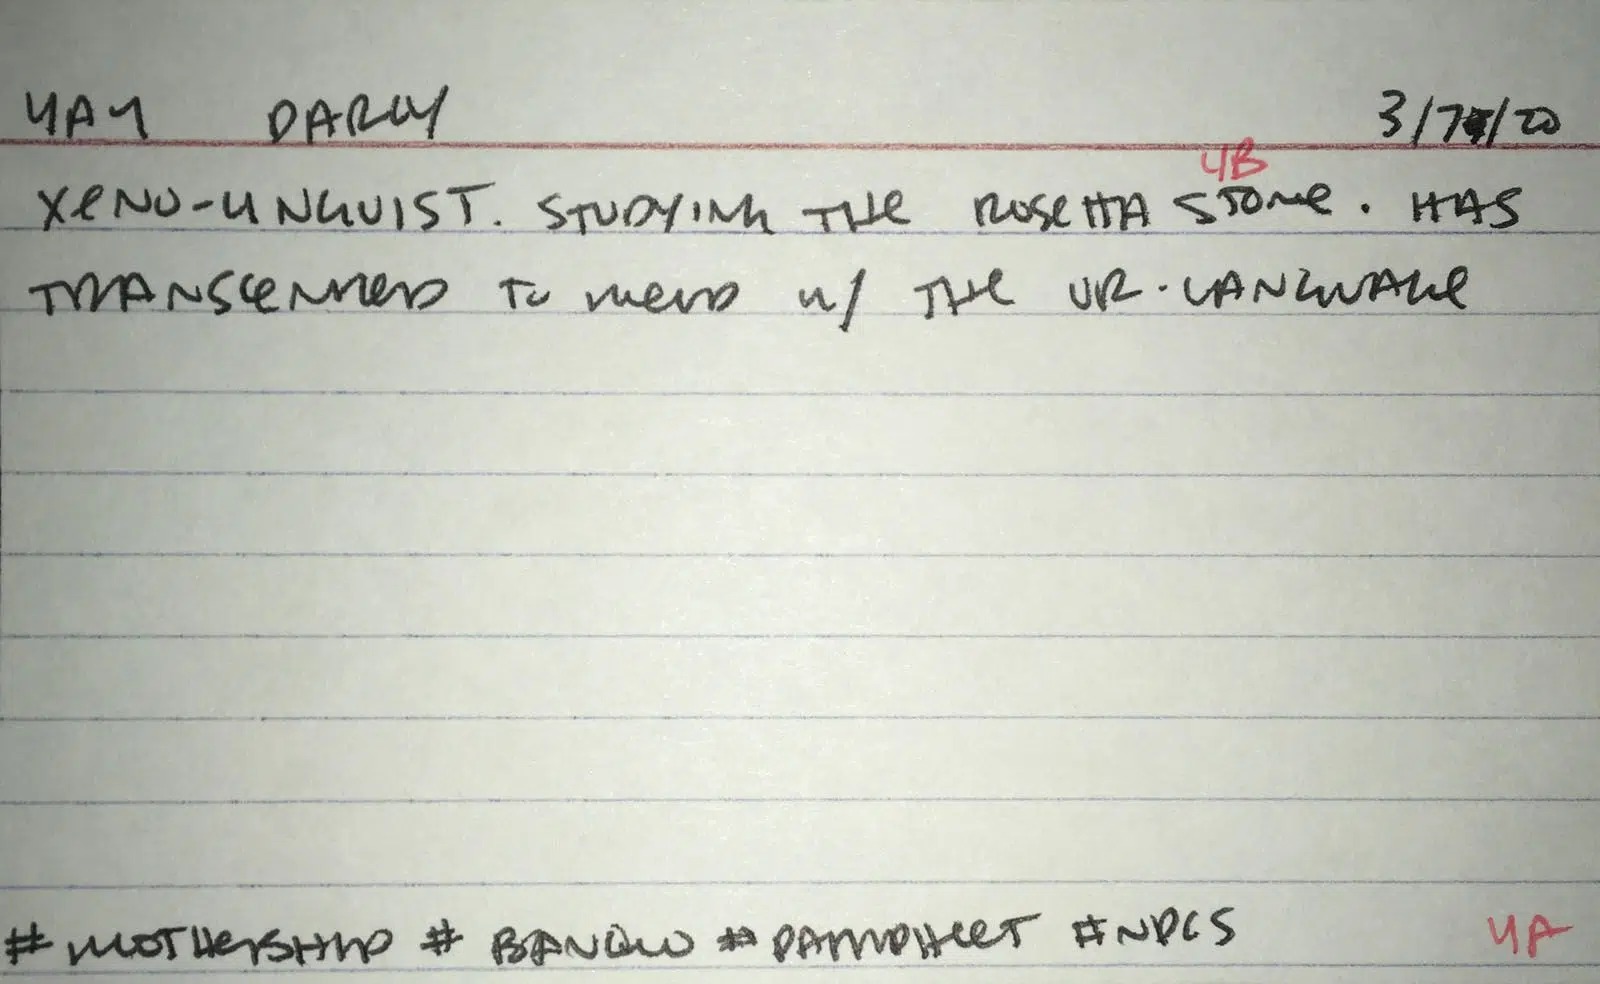 3/7/20
4B
XENO-LINGUIST. STUDYING THE ROSETTA STONE. HAS
TRANSCENDED TO MELD W/ THE UR-LANGUAGE
#MOTHERSHIP #PAMPHLET #NPCS 4A